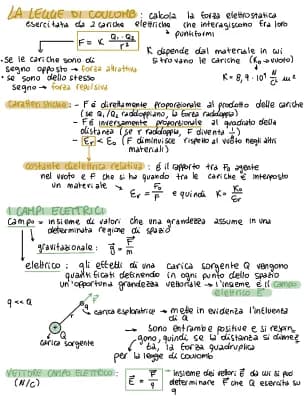 LA LEGGE DI COULOMB : calcola la forza elettrostatica
esercitata da 2 cariche elettriche che interagiscono fra loro
puntiformi
F = K Q₁ · Q₂ / r²
K dipende dal materiale in cui si trovano le cariche (K₀→vuoto)
K = 8,9 · 10⁹ N/C² m²
• se le cariche sono di segno opposto → forza attrattiva
• se sono dello stesso segno → forza repulsiva
caratteristiche: - F è direttamente proporzionale al prodotto delle cariche
(se Q₁/Q₂ raddoppiano, la forza raddoppia)
- F è inversamente proporzionale al quadrato della
distanza (se r raddoppia, F diventa 1/4)
- Er < E₀ (F diminuisce rispetto al vuoto negli altri
materiali)
costante dielettrica relativa : è il rapporto tra F₀ agente
nel vuoto e F che si ha quando tra le cariche è interposto
un materiale → Er = F₀/F e quindi K = K₀/Er
I CAMPI ELETTRICI
campo = insieme di valori che una grandezza assume in una
determinata regione di spazio
gravitazionale : g = F/m
elettrico : gli effetti di una carica sorgente Q vengono
quantificati definendo in ogni punto dello spazio
un'opportuna grandezza vettoriale → l'insieme è il campo
elettrico E
q << Q
F
q
P
r
carica esploratrice → mette in evidenza l'influenza
di Q
Q
carica sorgente
→ sono entrambe positive e si respin
gono, quindi se la distanza si dimez
ta, la forza quadruplica
per la legge di coulomb
VETTORE CAMPO ELETTRICO :
(N/C)
E = F/q
→ insieme dei vettori E da cui si può
determinare F che Q esercita su
q